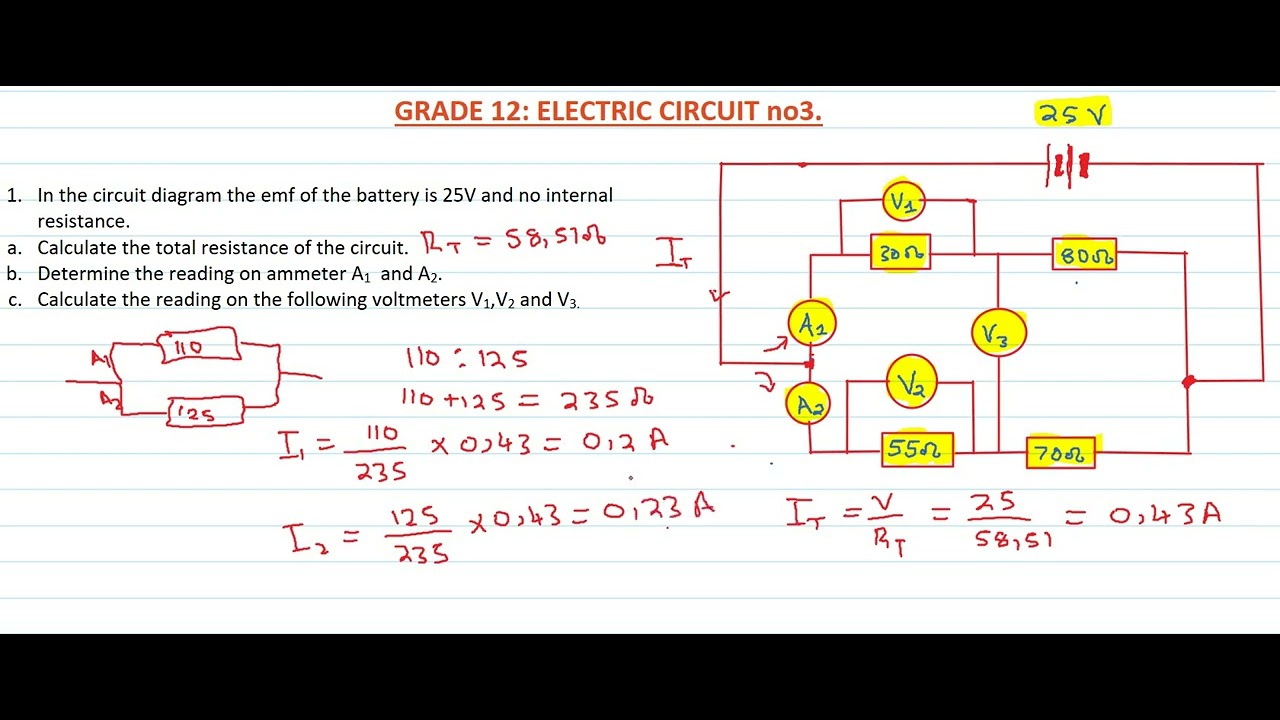 GRADE 12: ELECTRIC CIRCUIT no3.
25 V
1. In the circuit diagram the emf of the battery is 25V and no internal
resistance.
a. Calculate the total resistance of the circuit. R_T = 58,51Ω
b. Determine the reading on ammeter A₁ and A₂.
c. Calculate the reading on the following voltmeters V₁,V₂ and V₃.
I_T
V₁
30Ω
80Ω
A₁
V₃
A₂
V₂
55Ω
70Ω
A₁
110
A₂
125
110 : 125
110 + 125 = 235 Ω
I₁ = 110/235 × 0,43 = 0,2 A
I₂ = 125/235 × 0,43 = 0,23 A
I_T = V/R_T = 25/58,51 = 0,43 A